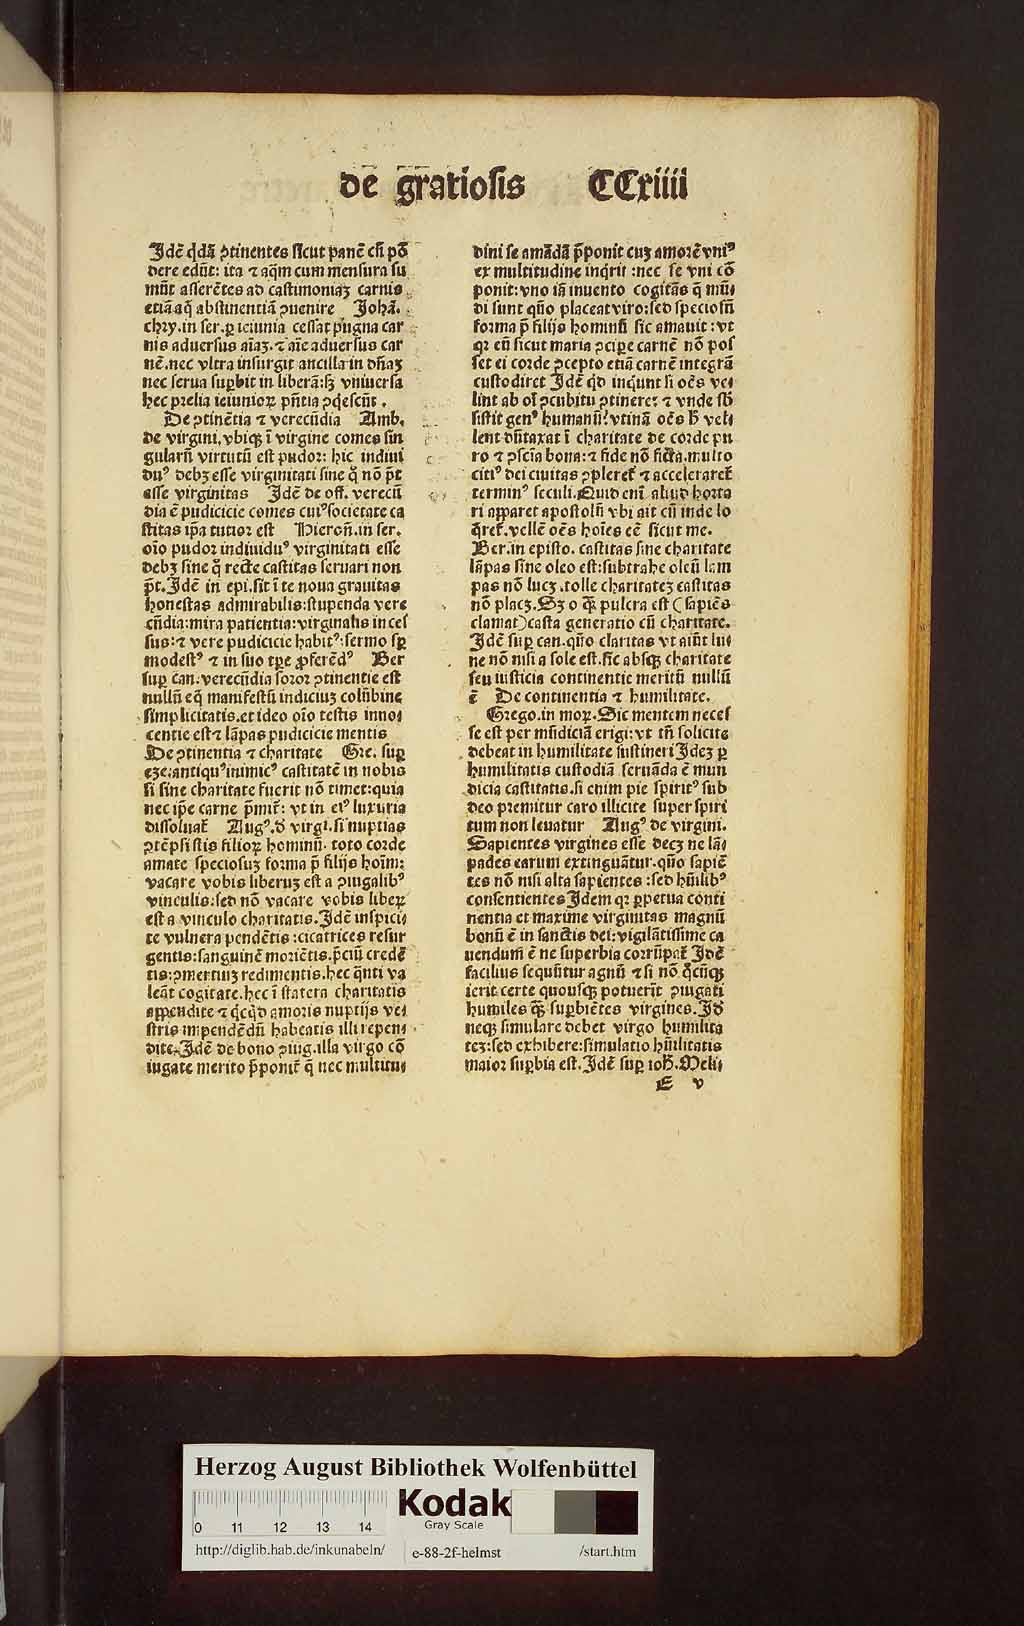 de gratiosis CCxiiii
Jdē qdā ꝯtinentes sicut panē cū pō
dere edūt: ita ⁊ aq̄m cum mensura su
mūt asserētes ad castimoniaꝫ carnis
etiā aq̄ abstinentiā ꝯuenire Johā.
chry. in ser. ꝑ ieiunia cessat pugna car
nis aduersus aīaꝫ. ⁊ aīe aduersus car
nē. nec vltra insurgit ancilla in dn̄aꝫ
nec serua suꝑbit in liberā: sꝫ vniuersa
hec prelia ieiunioꝝ pn̄tia ꝯq̄escūt.
De ꝯtinētia ⁊ verecūdia Amb.
de virgini. vbiqꝫ ī virgine comes sin
gularū virtutū est pudor: hic indiui
duꝰ debꝫ esse virginitati sine q̄ nō p̄t
esse virginitas Jdē de off. verecū
dia ē pudicicie comes cuiꝰ societate ca
stitas ip̄a tutior est Hieron̄. in ser.
oīo pudor indiuiduꝰ virginitati esse
debꝫ sine q̄ recte castitas seruari non
p̄t. Jdē in epi. sit ī te noua grauitas
honestas admirabilis: stupenda vere
cūdia: mira patientia: virginalis inces
sus: ⁊ vere pudicicie habitꝰ: sermo sꝑ
modestꝰ ⁊ in suo tꝑe ꝓferēdꝰ Ber
suꝑ can. verecūdia soror ꝯtinentie est
nullū eq̄ manifestū indiciuꝫ colūbine
simplicitatis. et ideo oīo testis inno
centie est ⁊ lāpas pudicicie mentis
De ꝯtinentia ⁊ charitate Gre. suꝑ
eze. antiquꝰ inimicꝰ castitatē in nobis
si sine charitate fuerit nō timet: quia
nec ip̄e carne p̄mit̄: vt in eiꝰ luxuria
dissoluat̄ Augꝰ. đ virgi. si nuptias
ꝯtēpsistis filioꝝ hominū. toto corde
amate speciosuꝫ forma p̄ filijs hoīm:
vacare vobis liberuꝫ est a ꝯiugalibꝰ
vinculis: sed nō vacare vobis libeꝝ
est a vinculo charitatis. Jdē inspici
te vulnera pendētis: cicatrices resur
gentis: sanguinē moriētis. p̄ciū credē
tis: ꝯmertiuꝫ redimentis. hec q̄nti va
leāt cogitate. hec ī statera charitatis
appendite ⁊ qͥcqͥd amoris nuptijs ve
stris impendēdū habeatis illi repen
dite. Jdē de bono ꝯiug. illa virgo cō
iugate merito p̄ponit̄ q̄ nec multitu
dini se amādā p̄ponit cuꝫ amorē vniꝰ
ex multitudine inqͥrit: nec se vni cō
ponit: vno iā inuento cogitās q̄ mū
di sunt quō placeat viro: sed speciosū
forma p̄ filijs hominū sic amauit: vt
qꝛ eū sicut maria ꝯciꝑe carnē nō pos
set ei corde ꝯcepto etiā carnē integrā
custodiret Jdē qͥd inqͥunt si oēs ve
lint ab oī ꝯcubitu ꝯtinere: ⁊ vnde sb̄
sistit genꝰ humanū? vtinā oēs h̄ vel
lent dūtaxat ī charitate de corde pu
ro ⁊ ꝯscīa bona: ⁊ fide nō ficta. multo
citiꝰ dei ciuitas ꝯpleret̄ ⁊ acceleraret̄
terminꝰ seculi. Quid enī aliud horta
ri apparet apostolū vbi ait cū inde lo
q̄ret̄. vellē oēs hoīes eē sicut me.
Ber. in episto. castitas sine charitate
lāpas sine oleo est: subtrahe oleū lam
pas nō lucꝫ. tolle charitateꝫ castitas
nō placꝫ. Sꝫ o q̄ꝫ pulcra est (sapiēs
clamat) casta generatio cū charitate.
Jdē suꝑ can. quō claritas vt aiūt lu
ne nō nisi a sole est. sic absqꝫ charitate
seu iusticia continentie meritū nullū
ē De continentia ⁊ humilitate.
Grego. in moꝝ. Sic mentem neces
se est per mūdiciā erigi: vt tn̄ solicite
debeat in humilitate sustineri Jdeꝫ ꝑ
humilitatis custodiā seruāda ē mun
dicia castitatis. si enim pie spiritꝰ sub
deo premitur caro illicite super spiri
tum non leuatur Augꝰ de virgini.
Sapientes virgines esse decꝫ ne lā
pades earum extinguātur. quō sapiē
tes nō nisi alta sapientes: sed hūilibꝰ
consentientes Jdem qꝛ ꝑpetua conti
nentia et maxime virginitas magnū
bonū ē in sanctis dei: vigilātissime ca
uendum ē ne superbia corrūpat̄ Jdē
facilius sequūtur agnū ⁊ si nō qͦcūqꝫ
ierit certe quousqꝫ potuerīt ꝯiugati
humiles q̄ꝫ suꝑbiētes virgines. Jđ
neqꝫ simulare debet virgo humilita
teꝫ: sed exhibere: simulatio hūilitatis
maior suꝑbia est. Jdē suꝑ ioh̄. Meli
E v
Herzog August Bibliothek Wolfenbüttel
Kodak
Gray Scale
0 11 12 13 14
http://diglib.hab.de/inkunabeln/ e-88-2f-helmst /start.htm